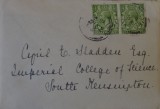 Cyril C. Gladden Esq.
Imperial College of Science
South Kensington